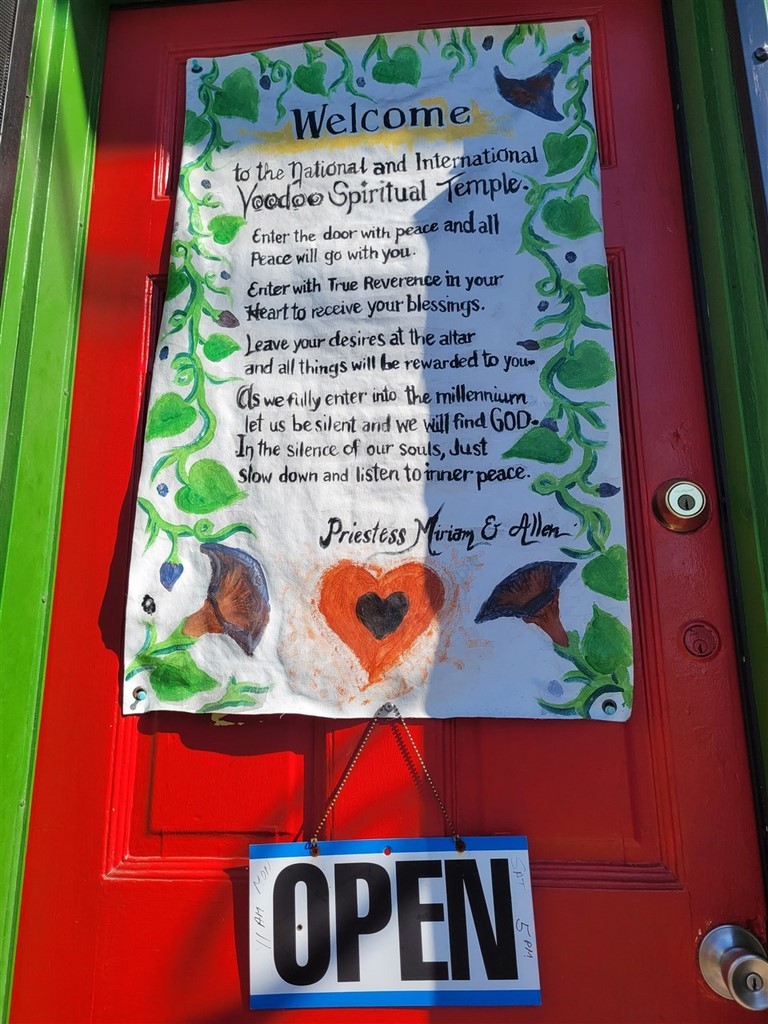 Welcome
to the National and International
Voodoo Spiritual Temple.
Enter the door with peace and all
Peace will go with you.
Enter with True Reverence in your
Heart to receive your blessings.
Leave your desires at the altar
and all things will be rewarded to you.
As we fully enter into the millennium
let us be silent and we will find GOD.
In the silence of our souls, Just
slow down and listen to inner peace.
Priestess Miriam & Allen.
11 AM MON
OPEN
SAT 5 PM